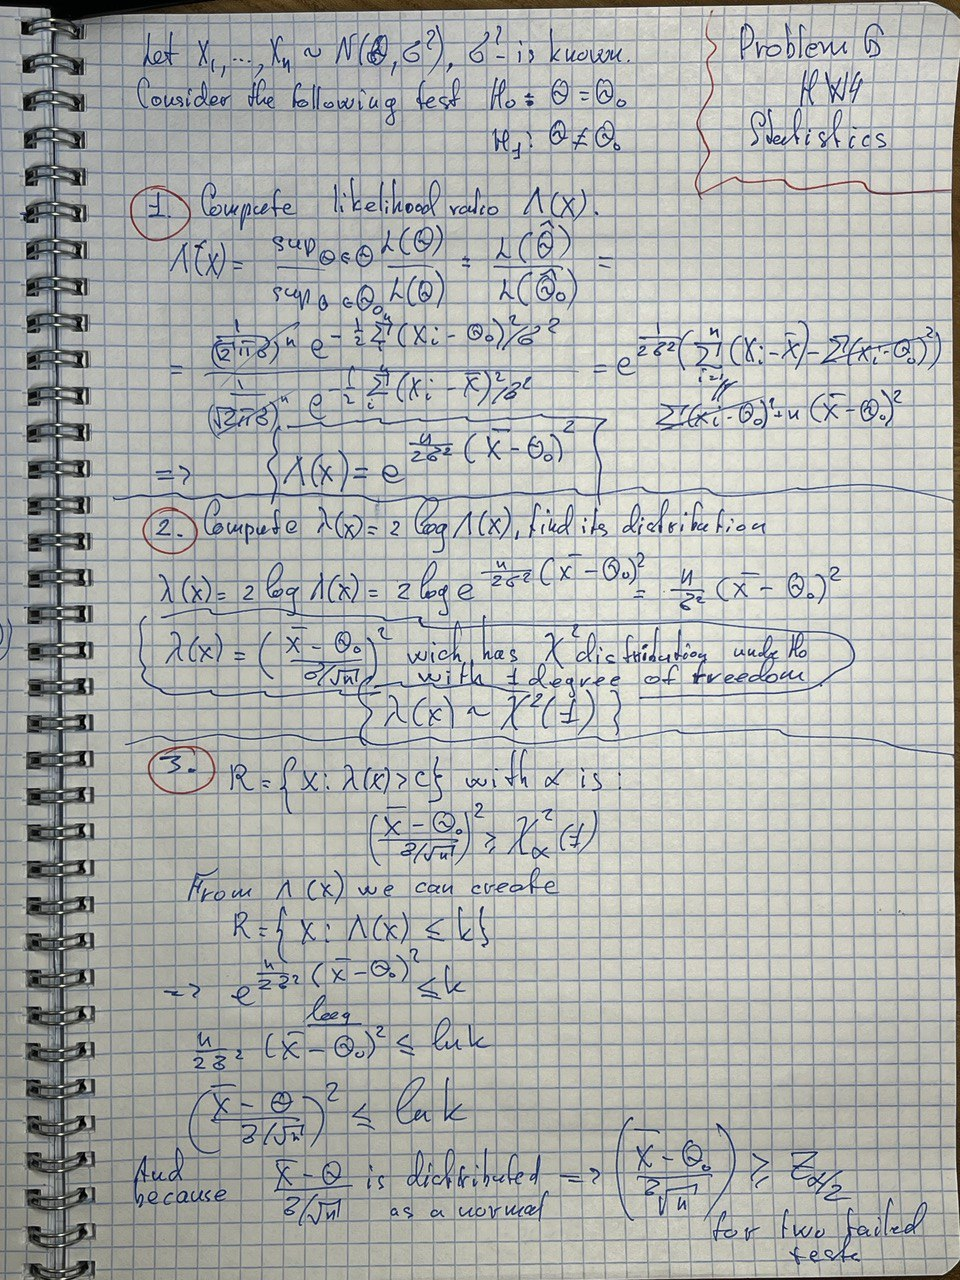 Let X₁, ..., Xₙ ~ N(Θ, σ²), σ² - is known.
Consider the following test H₀: Θ = Θ₀
H₁: Θ ≠ Θ₀
Problem 5
HW4
Statistics
1. Compute likelihood ratio Λ(x).
Λ(x) = sup_{Θ∈Θ} L(Θ) / sup_{Θ∈Θ₀} L(Θ) = L(Θ̂) / L(Θ̂₀) =
= (1/(√2πσ))ⁿ e^{-1/2 Σ(Xi - Θ₀)²/σ²} / (1/(√2πσ))ⁿ e^{-1/2 Σ(Xi - X̄)²/σ²} = e^{1/2σ² (Σ_{i=1}^{n} (Xi - X̄) - Σ(xi - Θ₀)²)}
Σ(xi - Θ₀)² + n(X̄ - Θ₀)²
=> Λ(x) = e^{n/2σ² (X̄ - Θ₀)²}
2. Compute λ(x) = 2 log Λ(x), find its distribution
λ(x) = 2 log Λ(x) = 2 log e^{n/2σ² (X̄ - Θ₀)²} = n/σ² (X̄ - Θ₀)²
λ(x) = ((X̄ - Θ₀)/(σ/√n))² wich has χ² distribution under H₀
with 1 degree of freedom
λ(x) ~ χ²(1)
3. R = {x: λ(x) > c} with α is:
((X̄ - Θ₀)/(σ/√n))² ≥ χ²_α(1)
From Λ(x) we can create
R = {x: Λ(x) ≤ k}
=> e^{n/2σ² (X̄ - Θ₀)²} ≤ k
n/2σ² (X̄ - Θ₀)² ≤ ln k
((X̄ - Θ)/(σ/√n))² ≤ ln k
And because (X̄ - Θ)/(σ/√n) is distributed as a normal => ((X̄ - Θ₀)/(σ/√n)) ≥ Z_{α/2}
for two tailed
tests